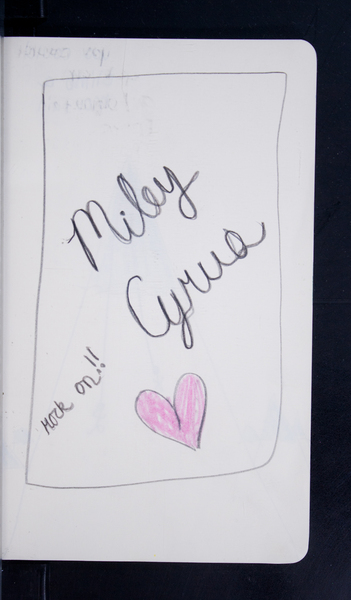 Miley
Cyrua
Rock on!!